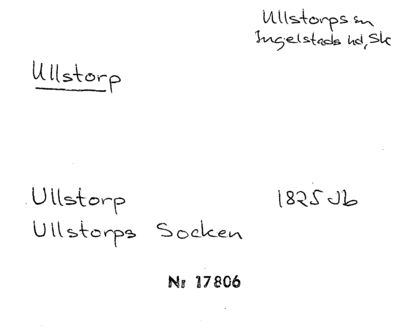 Ullstorps sn
Ingelstads hd, Sk
Ullstorp
Ullstorp 1825 Jb
Ullstorps Socken
Nr 17806